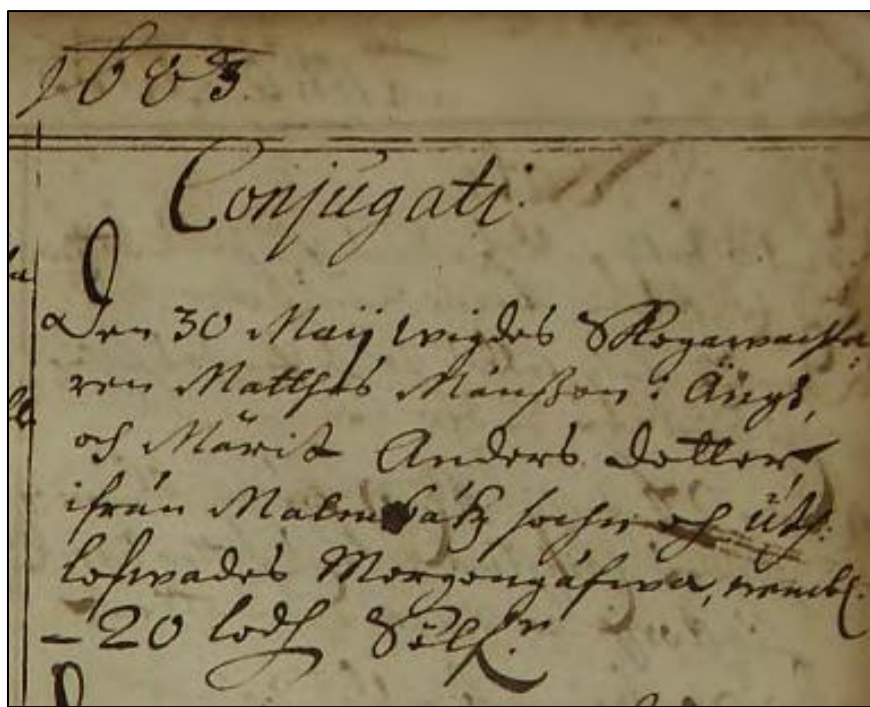 1683.
Conjugati.
Den 30 Maij wigdes Skogawachta:
ren Matthes Månßon i Ängs,
och Märit Anders dotter
ifrån Malmbäck sochn och uth:
lofwades Morgongåfwa, nembl:
- 20 lodh Sölf:r